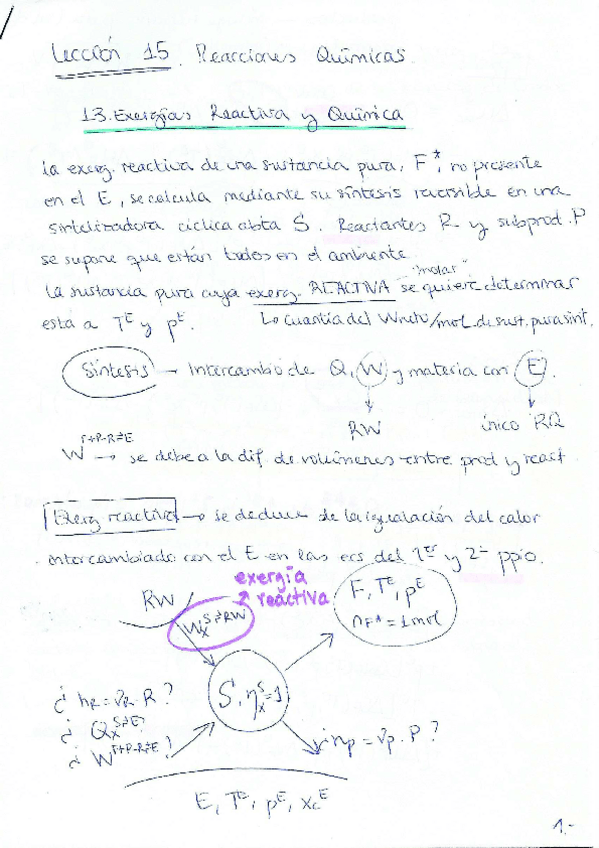 Lección 15. Reacciones Químicas.
13. Exergías Reactiva y Química
La exerg. reactiva de una sustancia pura, F*, no presente
en el E, se calcula mediante su síntesis reversible en una
sintetizadora cíclica abta S. Reactantes R y subprod. P
se supone que están todos en el ambiente.
"molar"
La sustancia pura cuya exerg. REACTIVA se quiere determinar
está a Tᴱ y pᴱ. Lo cuantía del Wneto/mol de sust. pura sint.
Síntesis → Intercambio de Q, W y materia con E.
RW único RQ
W^F+P-R⇄E → se debe a la dif. de volúmenes entre prod y react
Exerg reactiva → se deduce de la igualación del calor
intercambiado con el E en las ecs del 1er y 2º ppio.
exergía
reactiva
RW
Wx^S⇄RW
F, Tᴱ, pᴱ
nF* = 1mol
S, ηx^S=1
¿ nR = νR · R ?
¿ Qx^S⇄E ?
¿ W^F+P-R⇄E ?
¿ np = νp · P ?
E, Tᴱ, pᴱ, xcᴱ
1.-